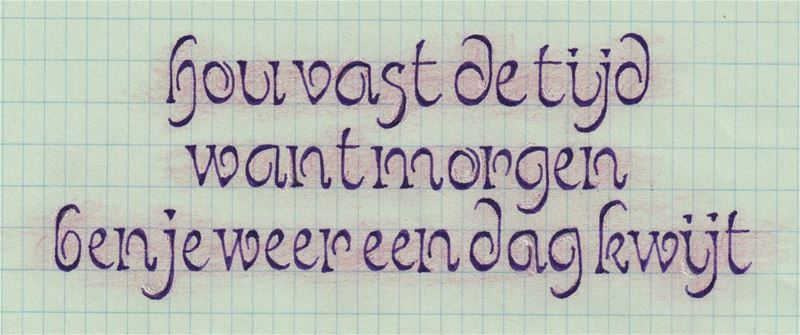 hou vast de tijd
want morgen
ben je weer een dag kwijt